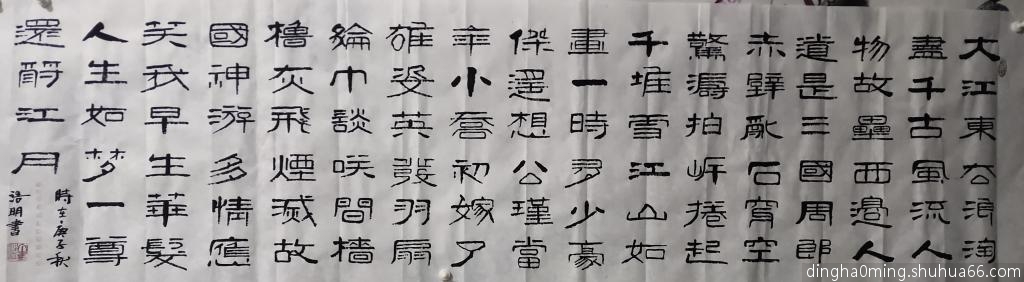 大江東去浪淘
盡千古風流人
物故壘西邊人
道是三國周郎
赤壁亂石穿空
驚濤拍岸捲起
千堆雪江山如
畫一時多少豪
傑遙想公瑾當
年小喬初嫁了
雄姿英發羽扇
綸巾談笑間檣
櫓灰飛煙滅故
國神游多情應
笑我早生華髮
人生如梦一尊
還酹江月
時在庚子秋
浩明書
dingha0ming.shuhua66.com